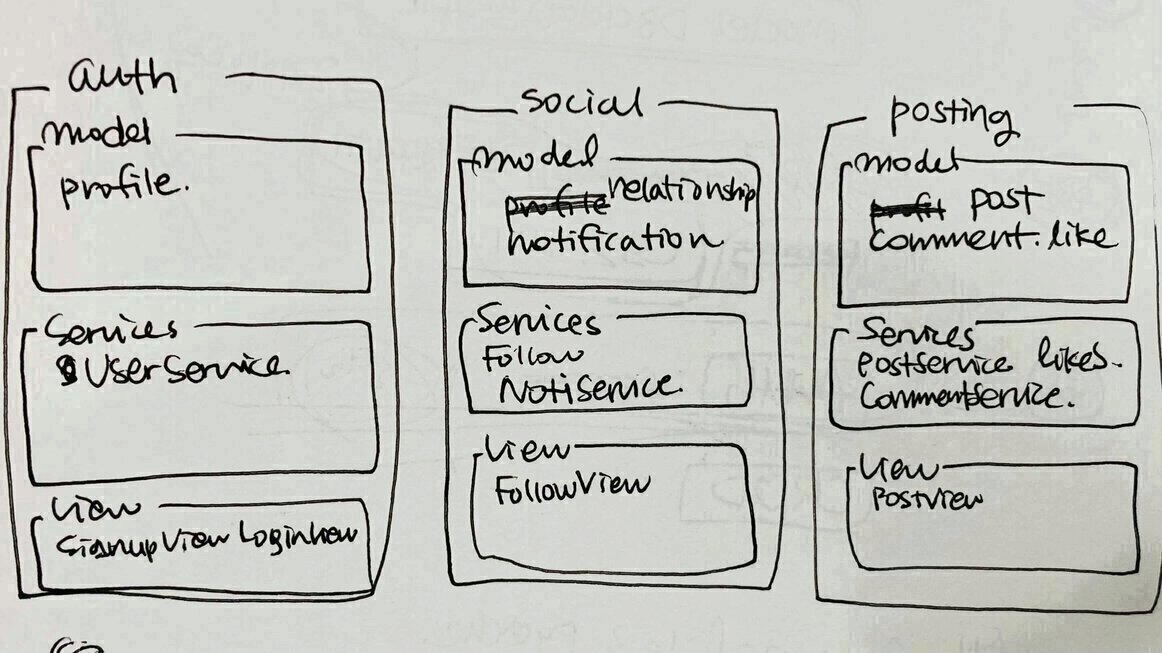 auth
model
profile.
Services
UserService.
View
SignupView LoginView
social
model
relationship
notification
Services
Follow
NotiService.
View
FollowView
posting
model
post
comment. like
Services
postservice likes.
CommentService.
View
PostView